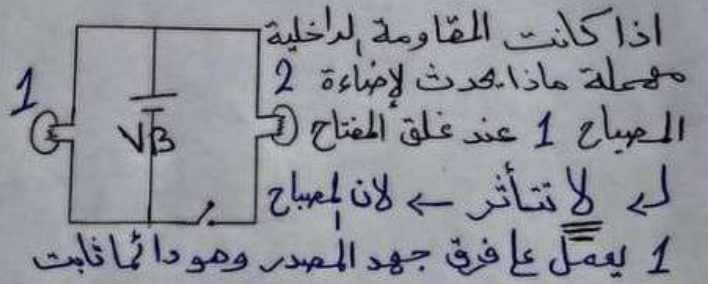 اذا كانت المقاومة الداخلية
مهملة ماذا يحدث لإضاءة
المصباح 1 عند غلق المفتاح
لا تتأثر ← لان المصباح
1 يعمل ع فرق جهد المصدر وهو دائما ثابت
1
2
VB